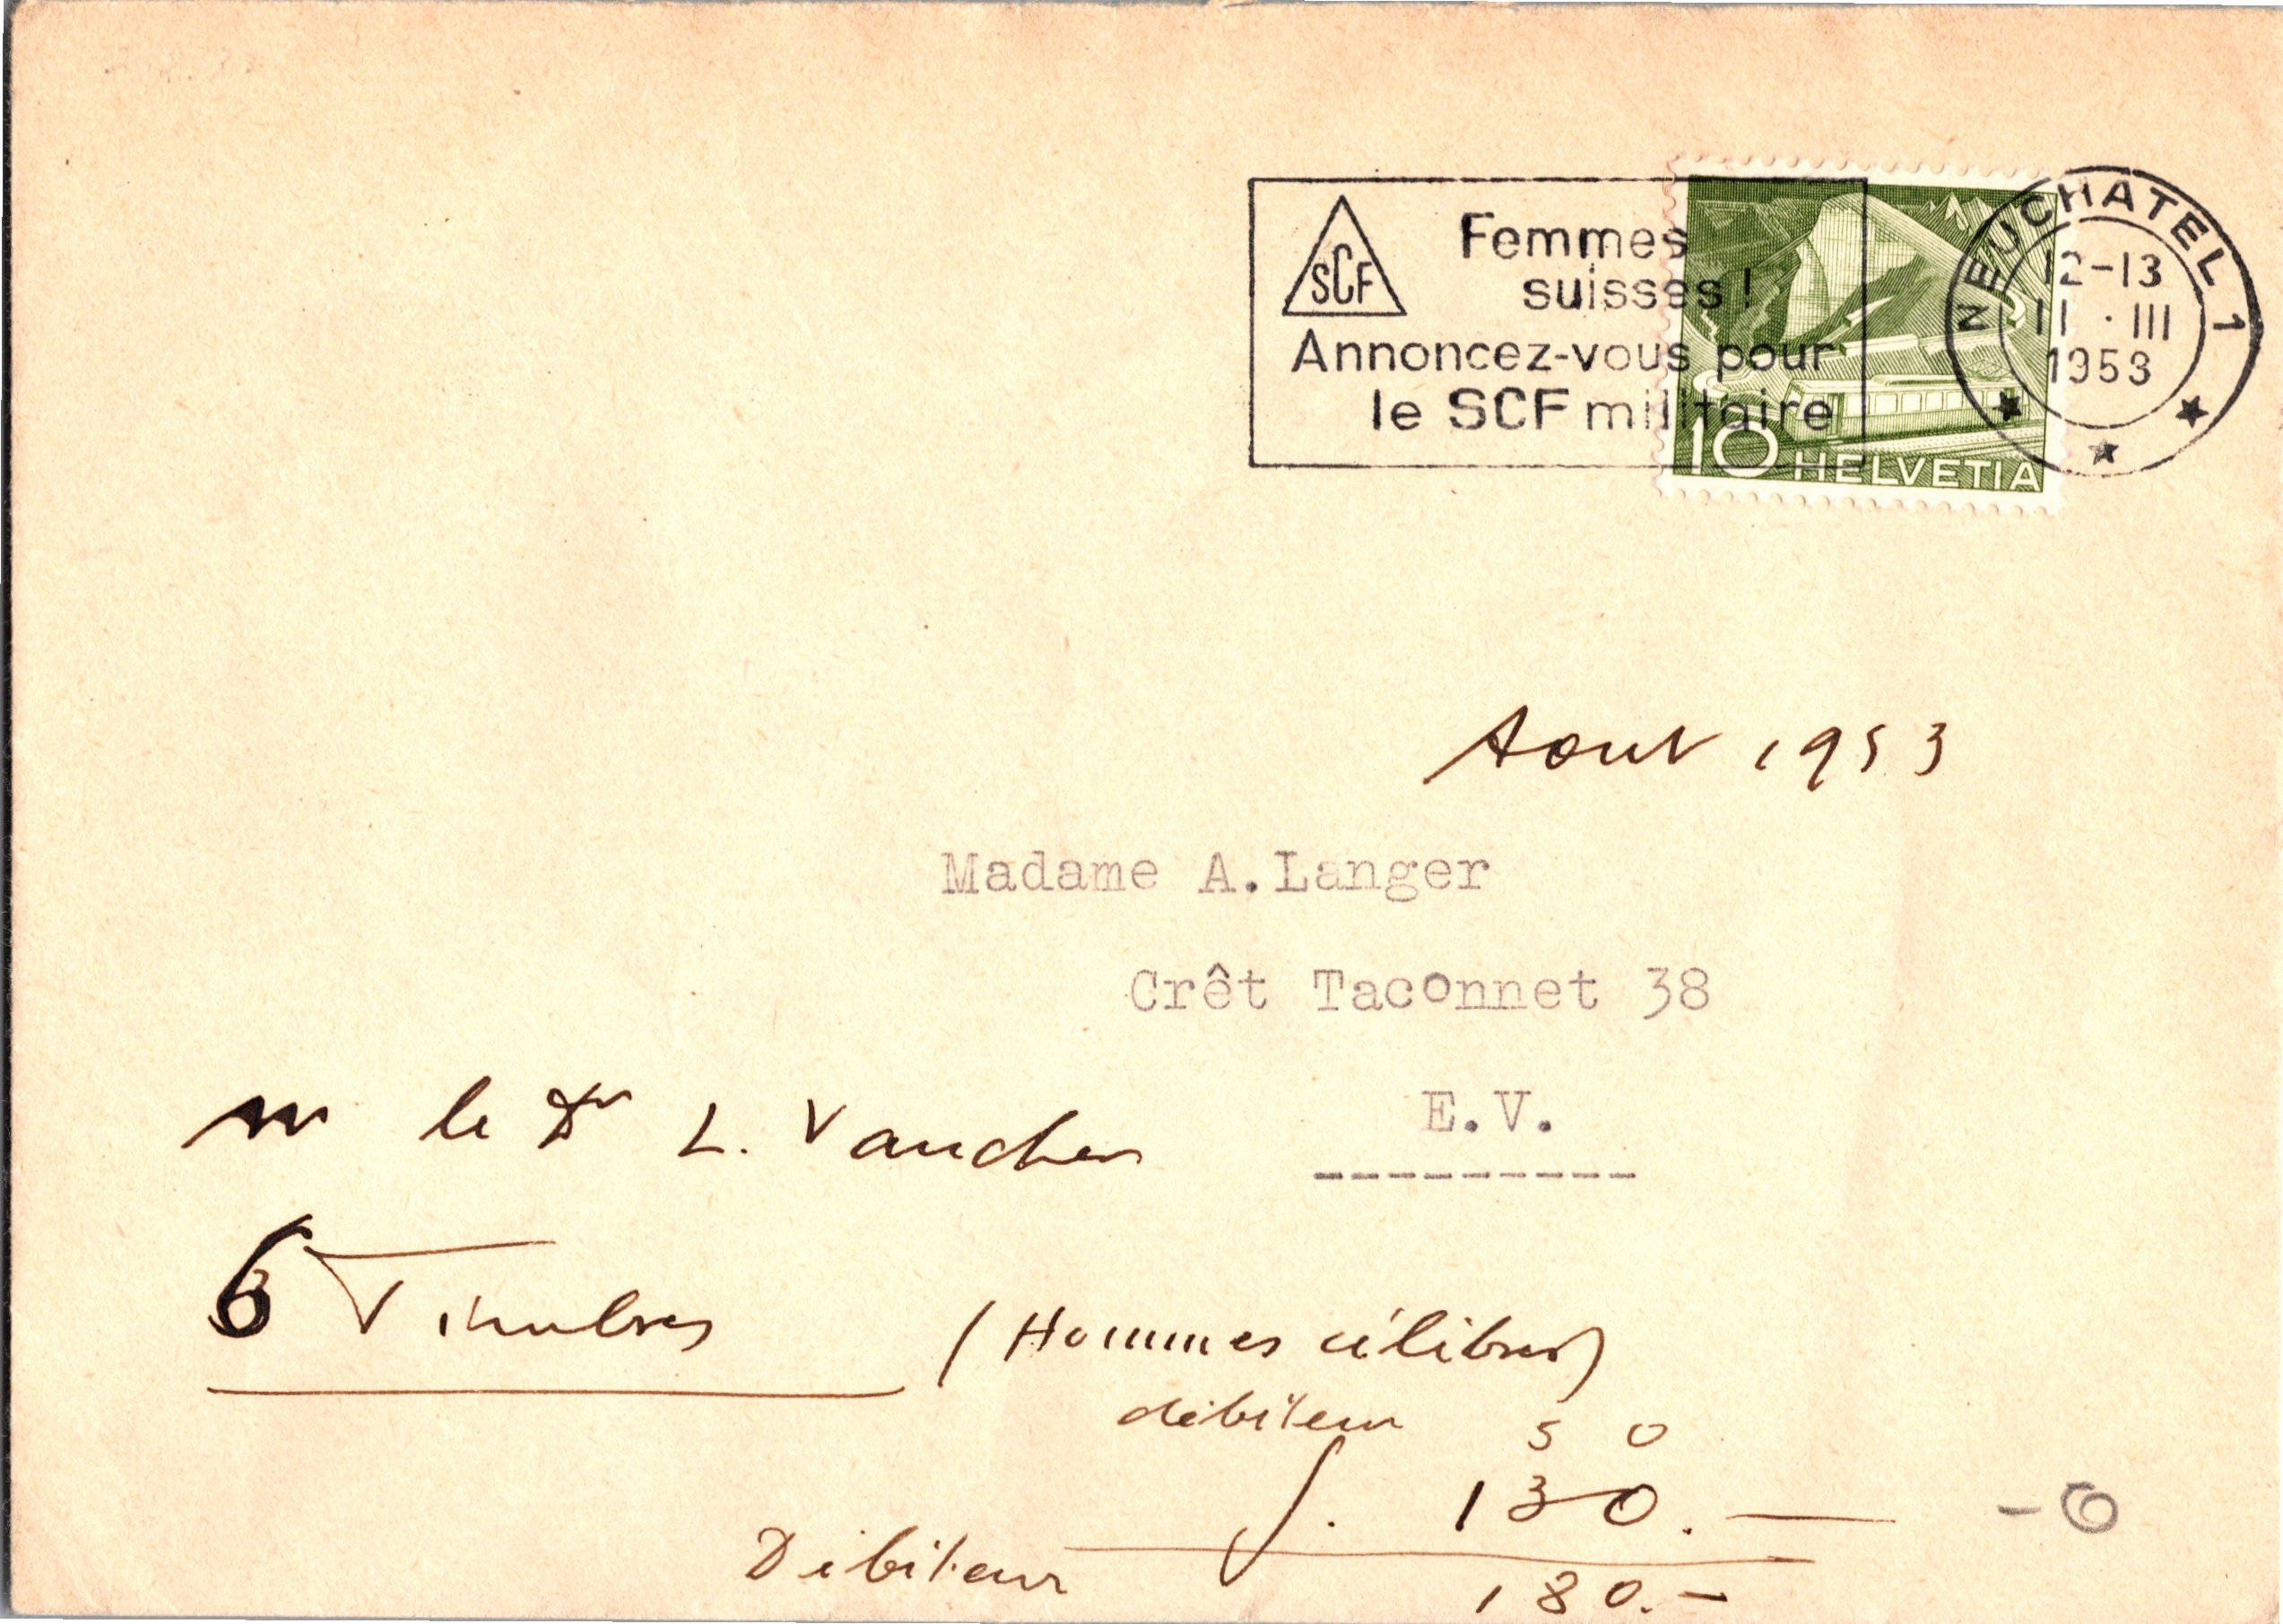 SCF
Femmes
suisses !
Annoncez-vous pour
le SCF militaire
NEUCHATEL 1
12-13
11 · III
1953
10 HELVETIA
Aout 1953
Madame A.Langer
Crêt Taconnet 38
E.V.
----------
Mr le Dr L. Vaucher
6 Timbres
(Hommes célibres)
débiteur
50
f. 130.—
-6
Débiteur 180.-